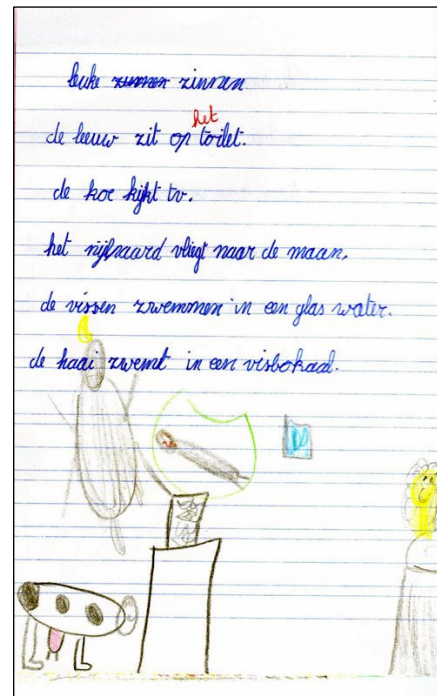 leuke zinnen zinnen
de leeuw zit op het toilet.
de koe kijkt tv.
het nijlpaard vliegt naar de maan.
de vissen zwemmen in een glas water.
de haai zwemt in een visbokaal.